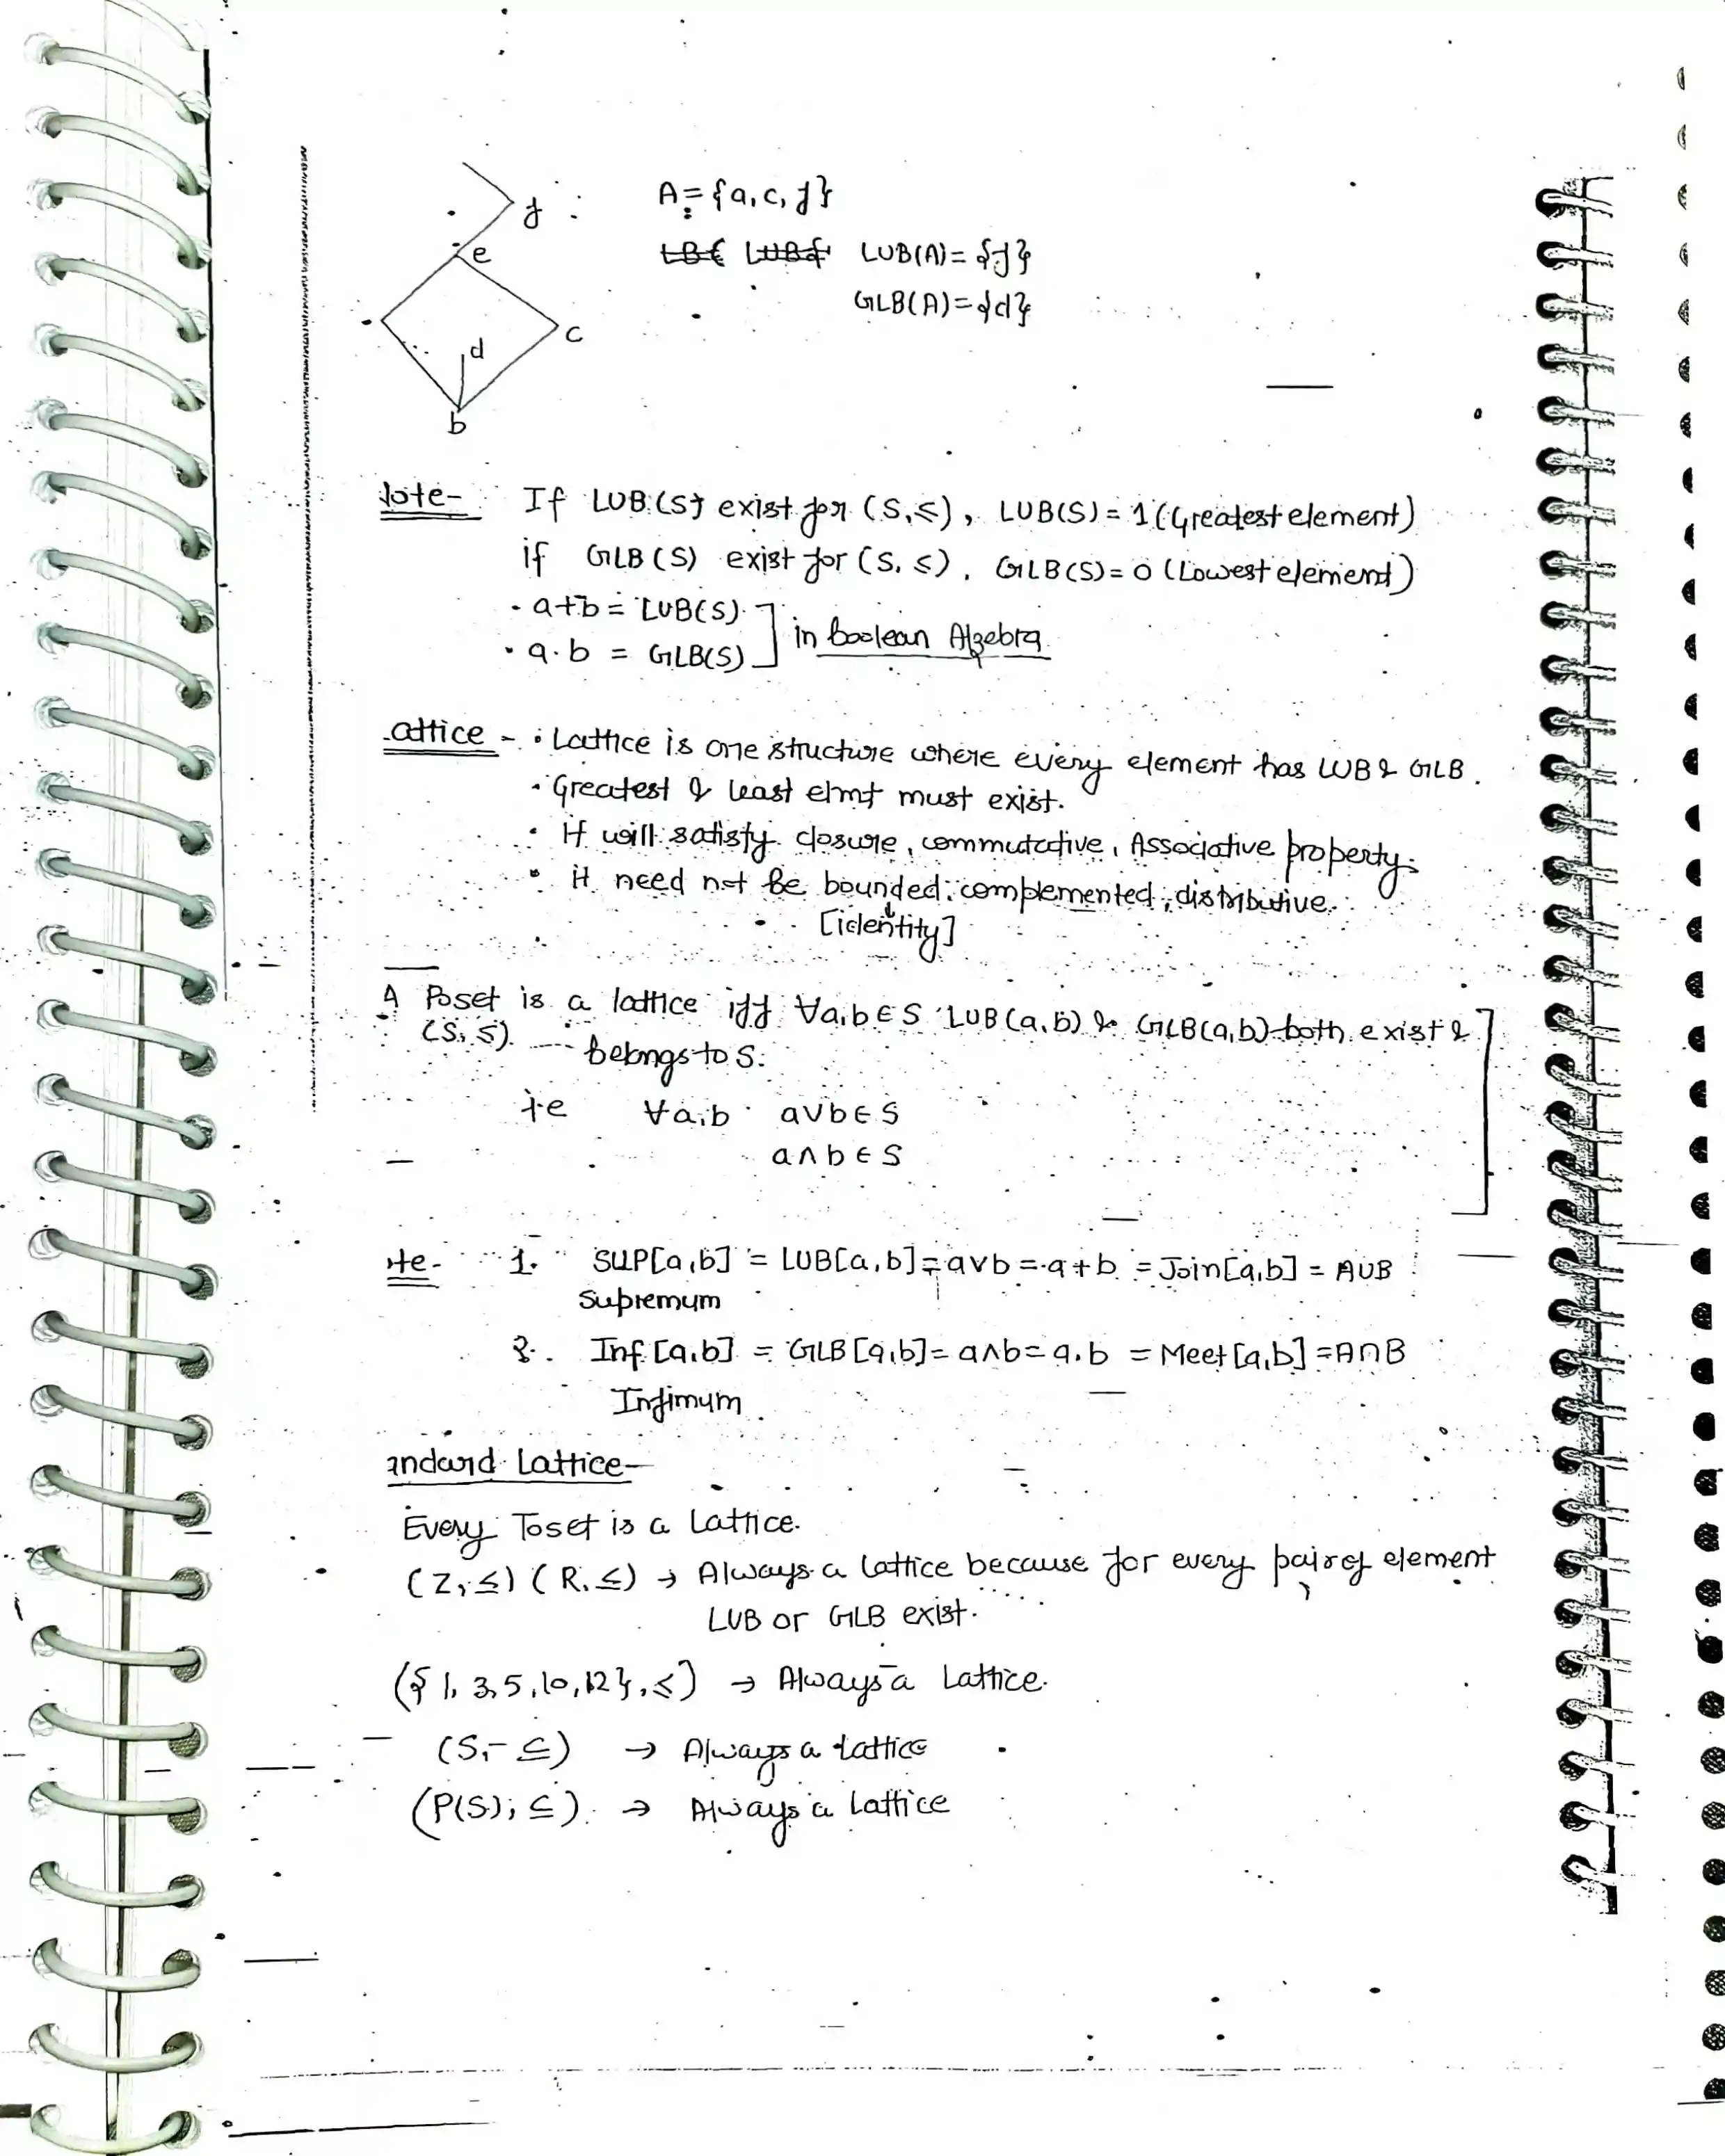 f
e
c
d
b
A = {a, c, f}
LUB(A) = {f}
GLB(A) = {d}
Note- If LUB(S) exist for (S, ≤), LUB(S) = 1 (Greatest element)
if GLB(S) exist for (S, ≤), GLB(S) = 0 (Lowest element)
• a+b = LUB(S)
• a·b = GLB(S) ] in boolean Algebra
attice - • Lattice is one structure where every element has LUB & GLB.
• Greatest & least elmt must exist.
• It will satisfy closure, commutative, Associative property.
• it need not be bounded, complemented, distributive.
[identity]
A Poset is a lattice iff ∀a,b ∈ S LUB(a,b) & GLB(a,b) both exist &
(S, ≤) belongs to S.
ie ∀a,b a∨b ∈ S
a∧b ∈ S
te- 1. SUP[a,b] = LUB[a,b] = a∨b = a+b = Join[a,b] = A∪B
Supremum
2. Inf[a,b] = GLB[a,b] = a∧b = a.b = Meet[a,b] = A∩B
Infimum
andard Lattice-
Every Toset is a Lattice.
(Z, ≤) (R, ≤) → Always a lattice because for every pair of element
LUB or GLB exist.
({1, 3, 5, 10, 12}, ≤] → Always a Lattice.
(S, ⊆) → Always a lattice
(P(S), ⊆) → Always a Lattice